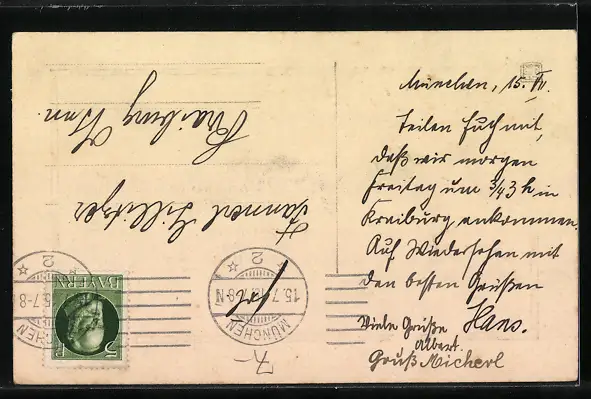 München, 15. VII.
Teilen Euch mit,
daß wir morgen
Freitag um 3/4 3 h in
Kraiburg ankommen.
Auf Wiedersehen mit
den besten Grüßen
Hans.
Viele Grüße
Albert.
Gruß Micherl
Kraiburg Inn.
BAYERN
5 PF
MÜNCHEN
2
15.7 7-8 N
MÜNCHEN
2
5.7 7-8